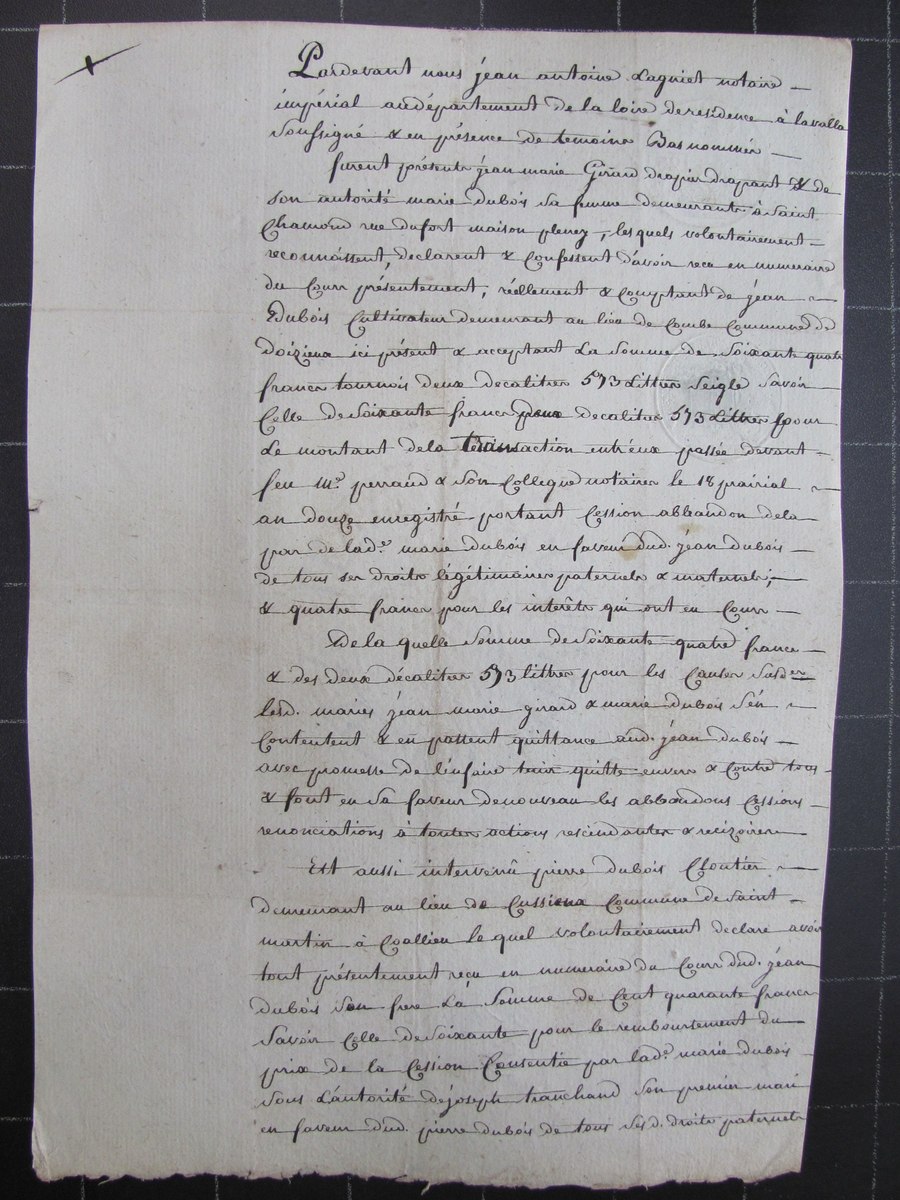 Pardevant nous jean antoine Lagniet notaire
impérial audépartement de la loire deresidence à lavalla
soussigné & en présence de temoins Bas nommés
furent présents jean marie Girard drapier drapant & de
son autorité marie dubois sa femme demeurants à Saint
Chamond rue dufort maison pleney, les quels volontairement
reconnaissent, declarent & Confessent d'avoir recu en numeraire
du Cours présentement, réellement & Comptant de jean
Dubois Cultivateur demeurant au lieu de Combe Commune de
doizieux ici présent & acceptant La Somme de Soixante quatre
francs tournois deux decalitres 573 Littres Seigle Savoir
Celle de Soixante francs deux decalitres 573 Littres pour
Le montant dela Transaction entr'eux passée devant
feu M.e perraud & Son Collegue notaires le 18 prairial
an douze enregistré portant Cession abbandon dela
part de lad.e marie dubois en faveur dud. jean dubois
de tous ses droits légétimaires paternels & maternels;
& quatre francs pour les intérêts qui ont eu Cours
De la quelle Somme de Soixante quatre francs
& des deux décalitres 573 littres pour les Causes Susd.es
lesd. maries jean marie girard & marie dubois S'én
Contentent & en passent quittance aud. jean dubois
avec promesse de l'enfaire tenir quitte envers & Contre tous
& font en Sa faveur denouveau les abbandons Cessions
renonciations à toutes actions rescindantes & recizoires
Est aussi intervenû pierre dubois Cloutier
demeurant au lieu de Cussieux Commune de Saint
martin à Coallieu le quel volontairement declare avoir
tout présentement recu en numeraire du Cours dud. jean
dubois Son frere La Somme de Cent quarante francs
Savoir Celle de Soixante pour le remboursement du
prix de la Cession Consentie par lad.e marie dubois
sous L'autorité de joseph tranchand Son premier mari
en faveur dud. pierre dubois de tous Sesd. droits paternels